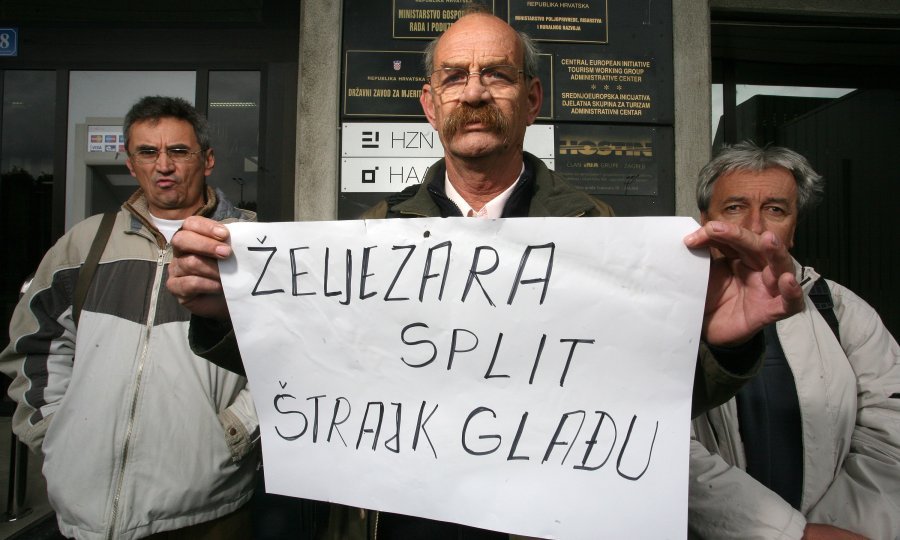 8
REPUBLIKA HRVATSKA
MINISTARSTVO GOSPO
RADA I PODUZ
REPUBLIKA HRVATSKA
MINISTARSTVO POLJOPRIVREDE, RIBARSTVA
I RURALNOG RAZVOJA
REPUBLIKA HRVAT
DRŽAVNI ZAVOD ZA MJERI
CENTRAL EUROPEAN INITIATIVE
TOURISM WORKING GROUP
ADMINISTRATIVE CENTER
* * *
SREDNJOEUROPSKA INICIJATIVA
DJELATNA SKUPINA ZA TURIZAM
ADMINISTRATIVNI CENTAR
HZN
HAA
HOSTIN
ŽELJEZARA
SPLIT
ŠTRAJK GLAĐU